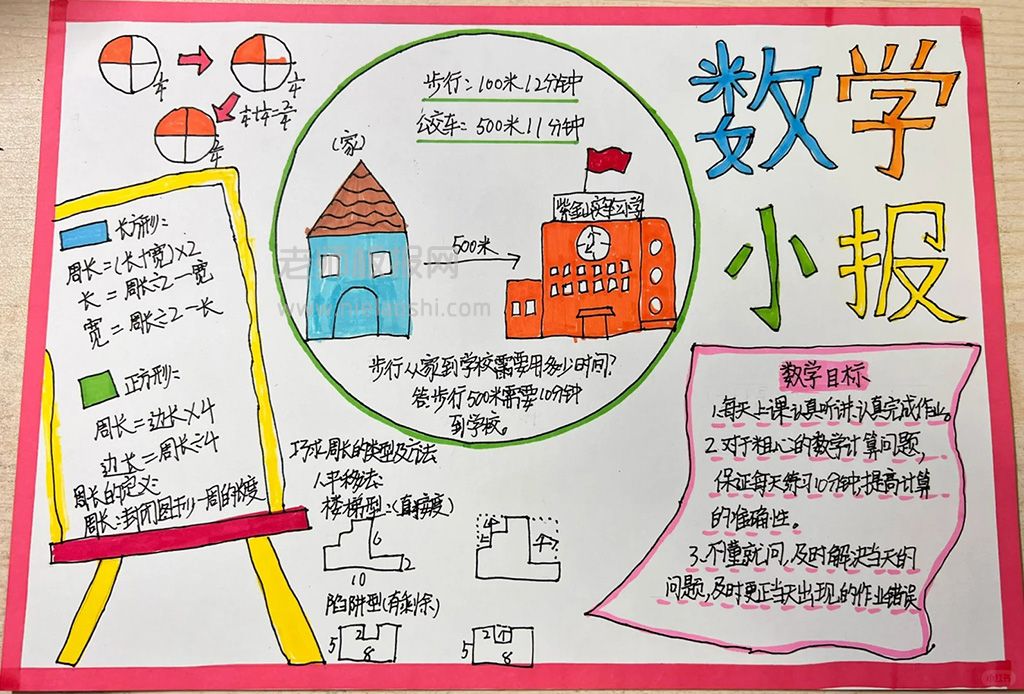 数学
小报
1/4
1/4
1/4+1/4=2/4
2/4
步行:100米12分钟
公交车:500米11分钟
(家)
500米
步行从家到学校需要用多少时间?
答:步行500米需要10分钟
到学校。
长方形:
周长=(长+宽)×2
长=周长÷2-宽
宽=周长÷2-长
正方形:
周长=边长×4
边长=周长÷4
周长的定义:
周长:封闭图形一周的长度
巧求周长的类型及方法
1.平移法:
楼梯型:(直接度)
6
10
2
陷阱型(有剩余)
5
2
8
5
2
8
数学目标
1.每天上课认真听讲,认真完成作业。
2.对于粗心的数学计算问题,
保证每天练习10分钟,提高计算
的准确性。
3.不懂就问,及时解决当天的
问题,及时更正当天出现的作业错误
老师板报网
小红书